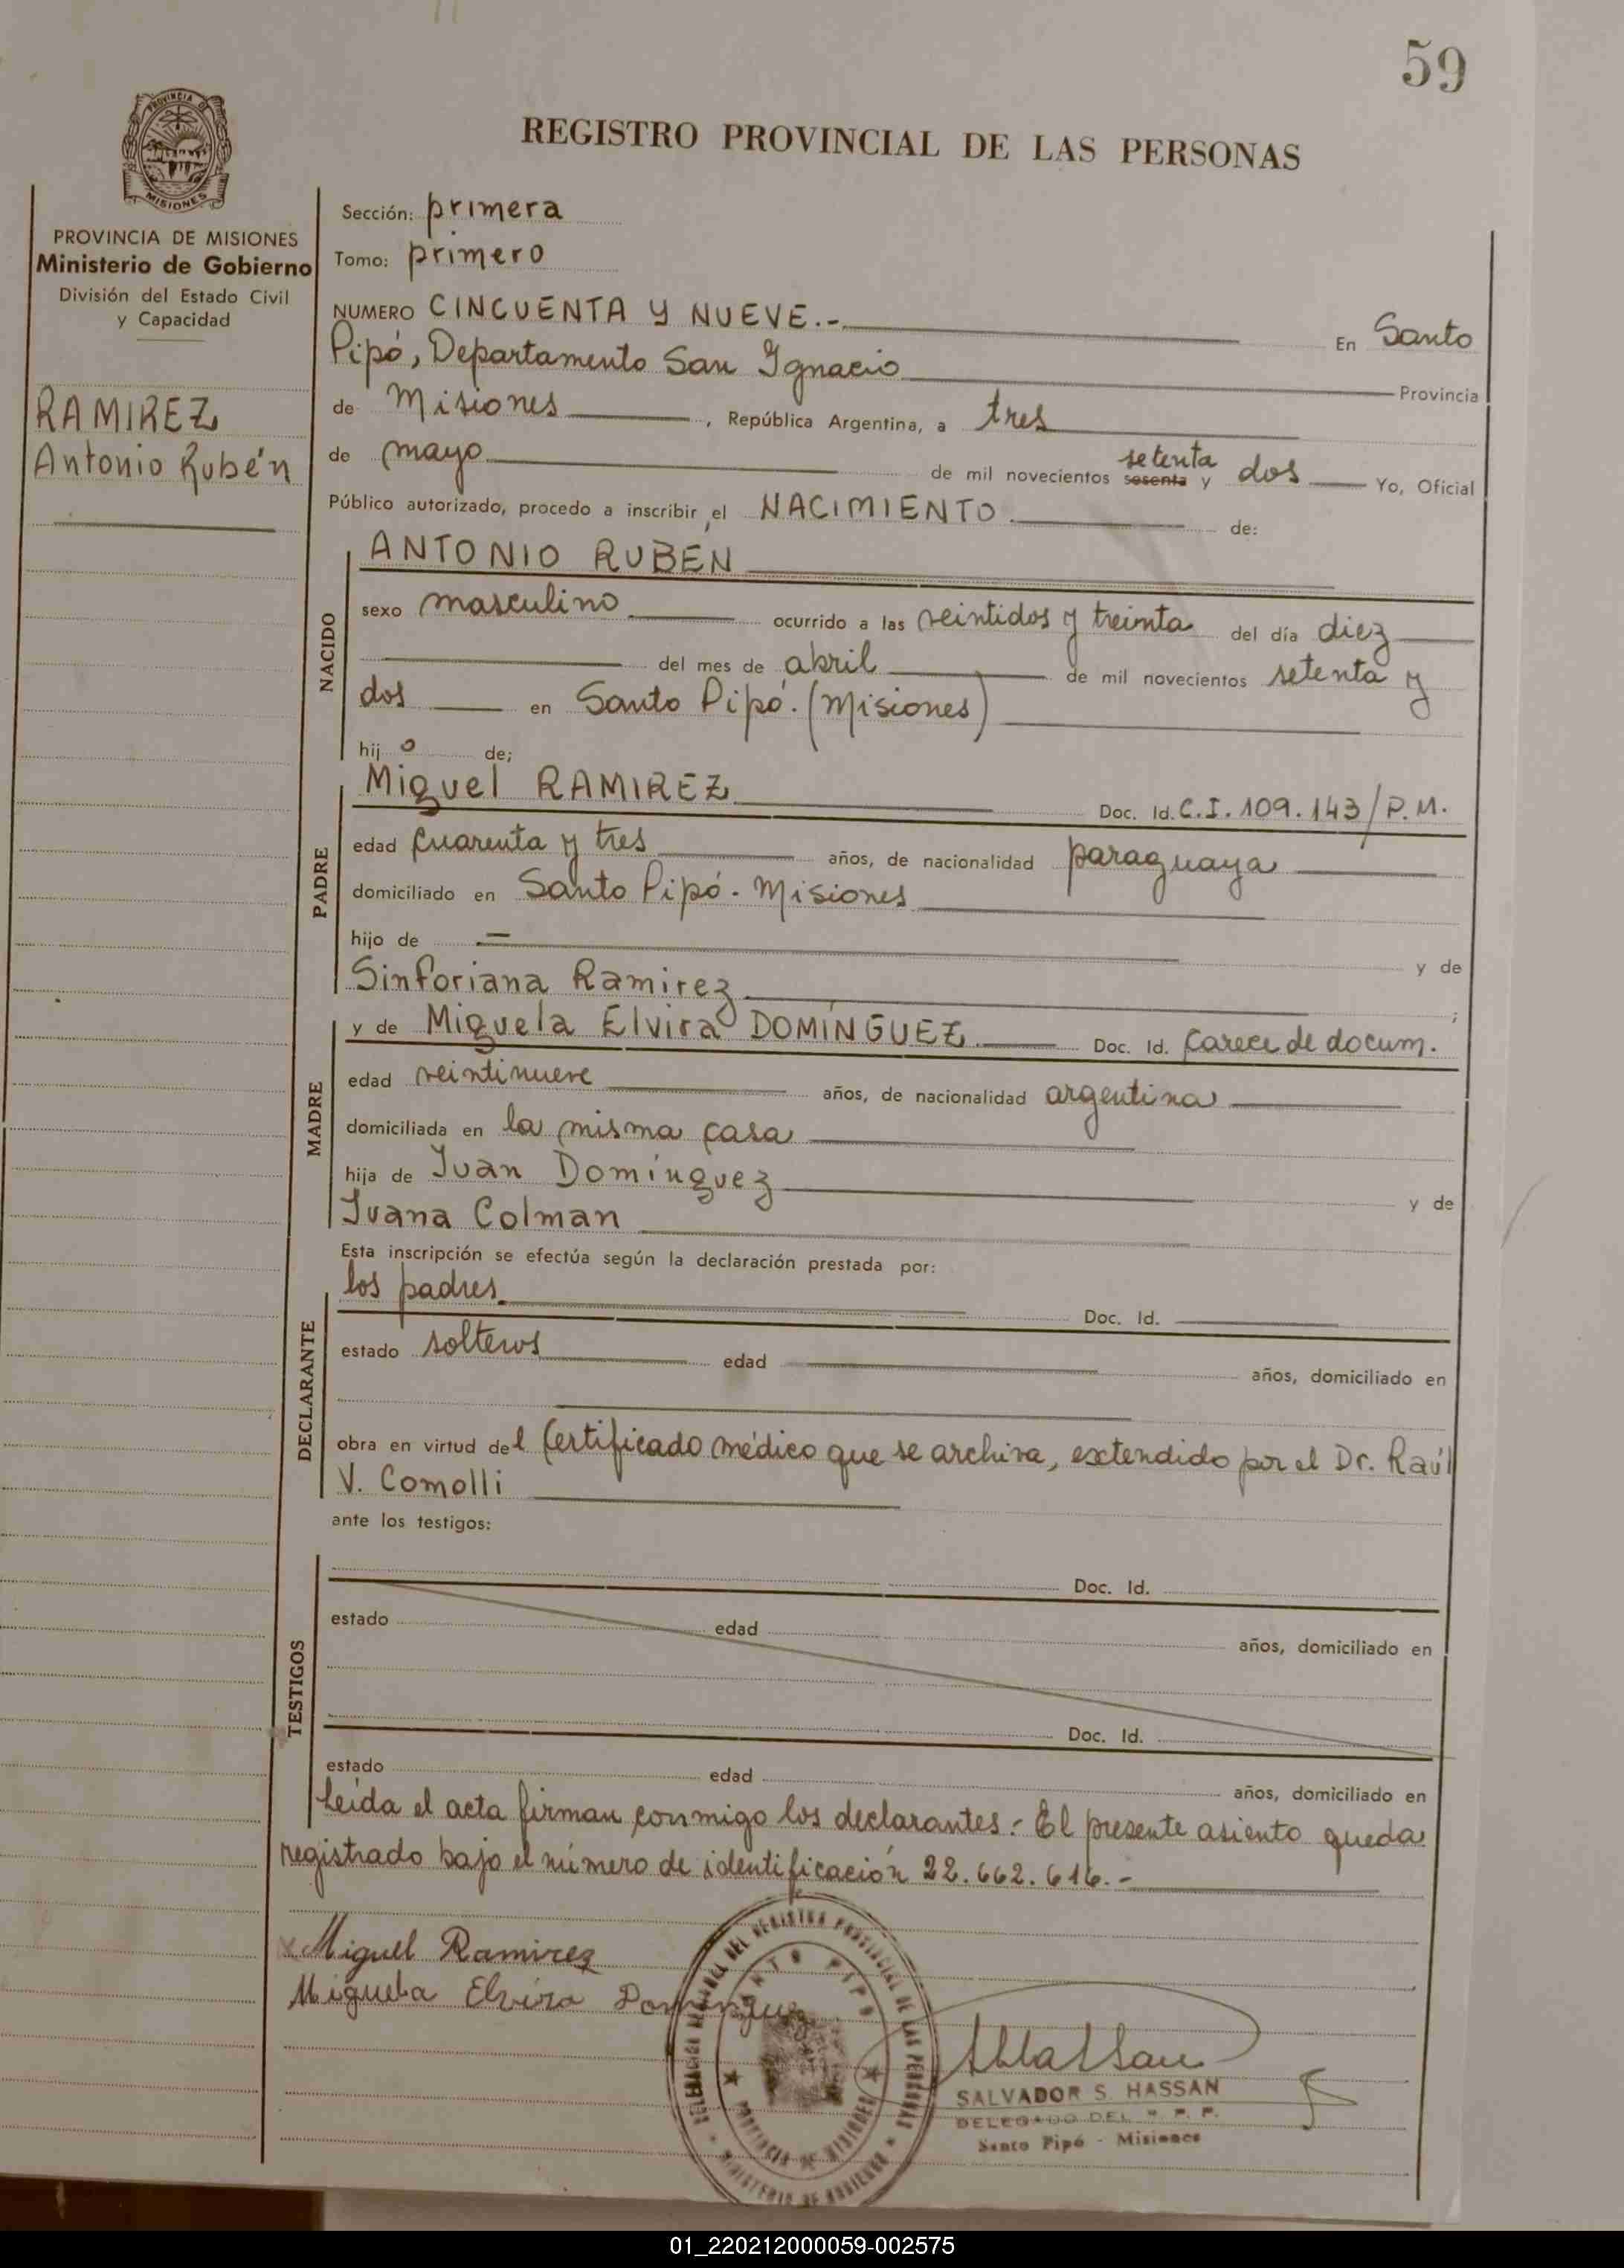 59
PROVINCIA D
MISIONES
REGISTRO PROVINCIAL DE LAS PERSONAS
PROVINCIA DE MISIONES
Ministerio de Gobierno
División del Estado Civil
y Capacidad
RAMIREZ
Antonio Rubén
Sección: primera
Tomo: primero
NUMERO CINCUENTA Y NUEVE.- En Santo
Pipó, Departamento San Ignacio Provincia
de Misiones, República Argentina, a tres
de mayo de mil novecientos sesenta setenta y dos Yo, Oficial
Público autorizado, procedo a inscribir el NACIMIENTO de:
NACIDO
ANTONIO RUBÉN
sexo masculino ocurrido a las veintidos y treinta del día diez
del mes de abril de mil novecientos setenta y
dos en Santo Pipó. (Misiones)
hijo de;
PADRE
Miguel RAMIREZ Doc. Id. C.I. 109.143/P.M.
edad cuarenta y tres años, de nacionalidad paraguaya
domiciliado en Santo Pipó - Misiones
hijo de — y de
Sinforiana Ramirez;
MADRE
y de Miguela Elvira DOMÍNGUEZ Doc. Id. carece de docum.
edad veintinueve años, de nacionalidad argentina
domiciliada en la misma casa
hija de Juan Domínguez y de
Juana Colman
Esta inscripción se efectúa según la declaración prestada por:
DECLARANTE
los padres Doc. Id.
estado solteros edad años, domiciliado en
obra en virtud del Certificado médico que se archiva, extendido por el Dr. Raúl
V. Comolli
ante los testigos:
TESTIGOS
Doc. Id.
estado edad años, domiciliado en
Doc. Id.
estado edad años, domiciliado en
Leída el acta firman conmigo los declarantes.- El presente asiento queda
registrado bajo el número de identificación 22.662.616.-
Miguel Ramirez
Miguela Elvira Dominguez
DELEGACION DEL REGISTRO PROVINCIAL DE LAS PERSONAS
SANTO PIPO
PROVINCIA DE MISIONES
MINISTERIO DE GOBIERNO
SALVADOR S. HASSAN
DELEGADO DEL R. P. P.
Santo Pipó - Misiones
01_220212000059-002575